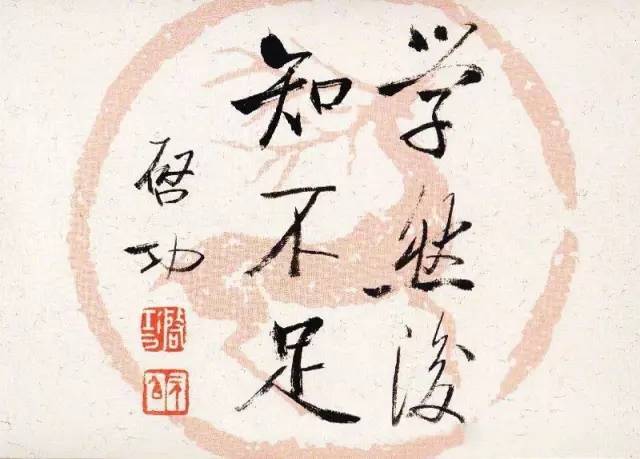 学然後
知不足
启功